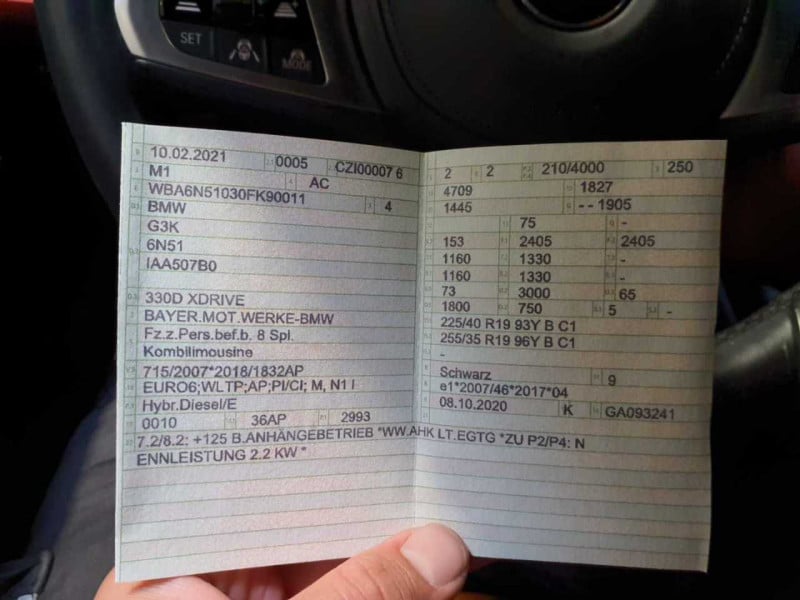 SET
MODE
10.02.2021 0005 CZI00007 6
M1 AC
WBA6N51030FK90011
BMW 4
G3K
6N51
IAA507B0
330D XDRIVE
BAYER.MOT.WERKE-BMW
Fz.z.Pers.bef.b. 8 Spl.
Kombilimousine
715/2007*2018/1832AP
EURO6;WLTP;AP;PI/CI; M, N1 I
Hybr.Diesel/E
0010 36AP 2993
7.2/8.2: +125 B.ANHÄNGEBETRIEB *WW.AHK LT.EGTG *ZU P2/P4: N
ENNLEISTUNG 2.2 KW *
2 2 210/4000 250
4709 1827
1445 - - 1905
75 -
153 2405 2405
1160 1330 -
1160 1330 -
73 3000 65
1800 750 5 -
225/40 R19 93Y B C1
255/35 R19 96Y B C1
-
Schwarz 9
e1*2007/46*2017*04
08.10.2020 K GA093241